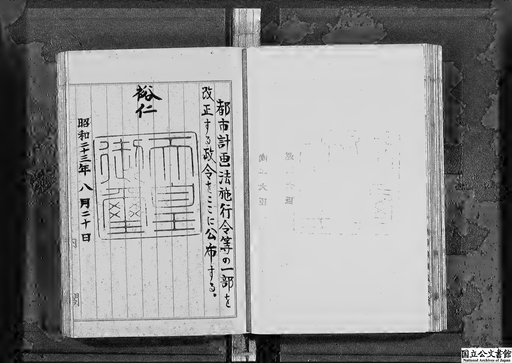 都市計画法施行令等の一部を
改正する政令をここに公布する。
裕仁
天皇
御璽
昭和二十三年八月二十日
内
閣
国立公文書館
National Archives of Japan